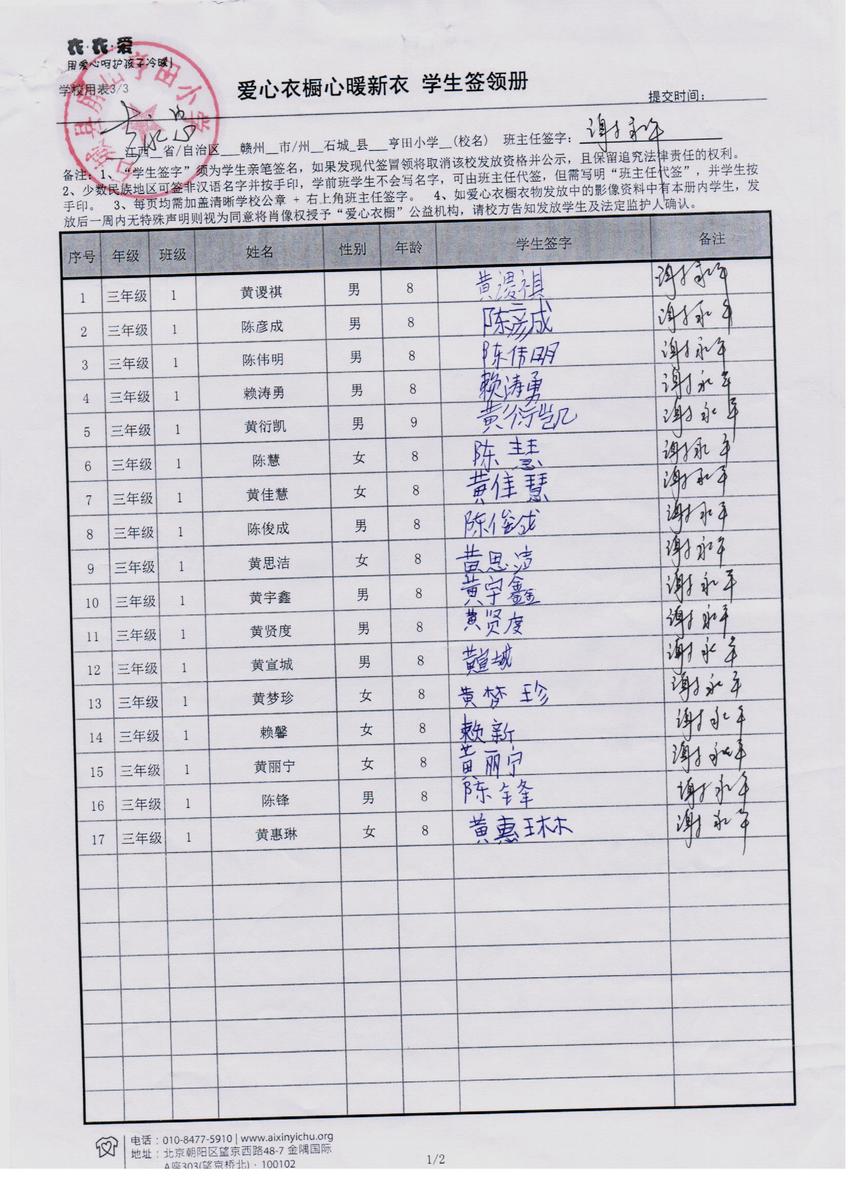 衣·衣·爱
用爱心呵护孩子冷暖!
学校用表3/3
爱心衣橱心暖新衣 学生签领册
提交时间:
江西__省/自治区___赣州__市/州__石城_县___亨田小学__(校名) 班主任签字: 谢永年
备注: 1、“学生签字”须为学生亲笔签名, 如果发现代签冒领将取消该校发放资格并公示, 且保留追究法律责任的权利。
2、少数民族地区可签非汉语名字并按手印, 学前班学生不会写名字, 可由班主任代签, 但需写明“班主任代签”, 并学生按
手印。 3、每页均需加盖清晰学校公章 + 右上角班主任签字。 4、如爱心衣橱衣物发放中的影像资料中有本册内学生, 发
放后一周内无特殊声明则视为同意将肖像权授予“爱心衣橱”公益机构, 请校方告知发放学生及法定监护人确认。
序号 年级 班级 姓名 性别 年龄 学生签字 备注
1 三年级 1 黄谡祺 男 8 黄谡祺 谢永年
2 三年级 1 陈彦成 男 8 陈彦成 谢永年
3 三年级 1 陈伟明 男 8 陈伟明 谢永年
4 三年级 1 赖涛勇 男 8 赖涛勇 谢永年
5 三年级 1 黄衍凯 男 9 黄衍凯 谢永年
6 三年级 1 陈慧 女 8 陈慧 谢永年
7 三年级 1 黄佳慧 女 8 黄佳慧 谢永年
8 三年级 1 陈俊成 男 8 陈俊成 谢永年
9 三年级 1 黄思洁 女 8 黄思洁 谢永年
10 三年级 1 黄宇鑫 男 8 黄宇鑫 谢永年
11 三年级 1 黄贤度 男 8 黄贤度 谢永年
12 三年级 1 黄宣城 男 8 黄宣城 谢永年
13 三年级 1 黄梦珍 女 8 黄梦珍 谢永年
14 三年级 1 赖馨 女 8 赖新 谢永年
15 三年级 1 黄丽宁 女 8 黄丽宁 谢永年
16 三年级 1 陈锋 男 8 陈锋 谢永年
17 三年级 1 黄惠琳 女 8 黄惠琳 谢永年
电话: 010-8477-5910 | www.aixinyichu.org
地址: 北京朝阳区望京西路48-7 金隅国际
A座303(望京桥北) · 100102
1/2